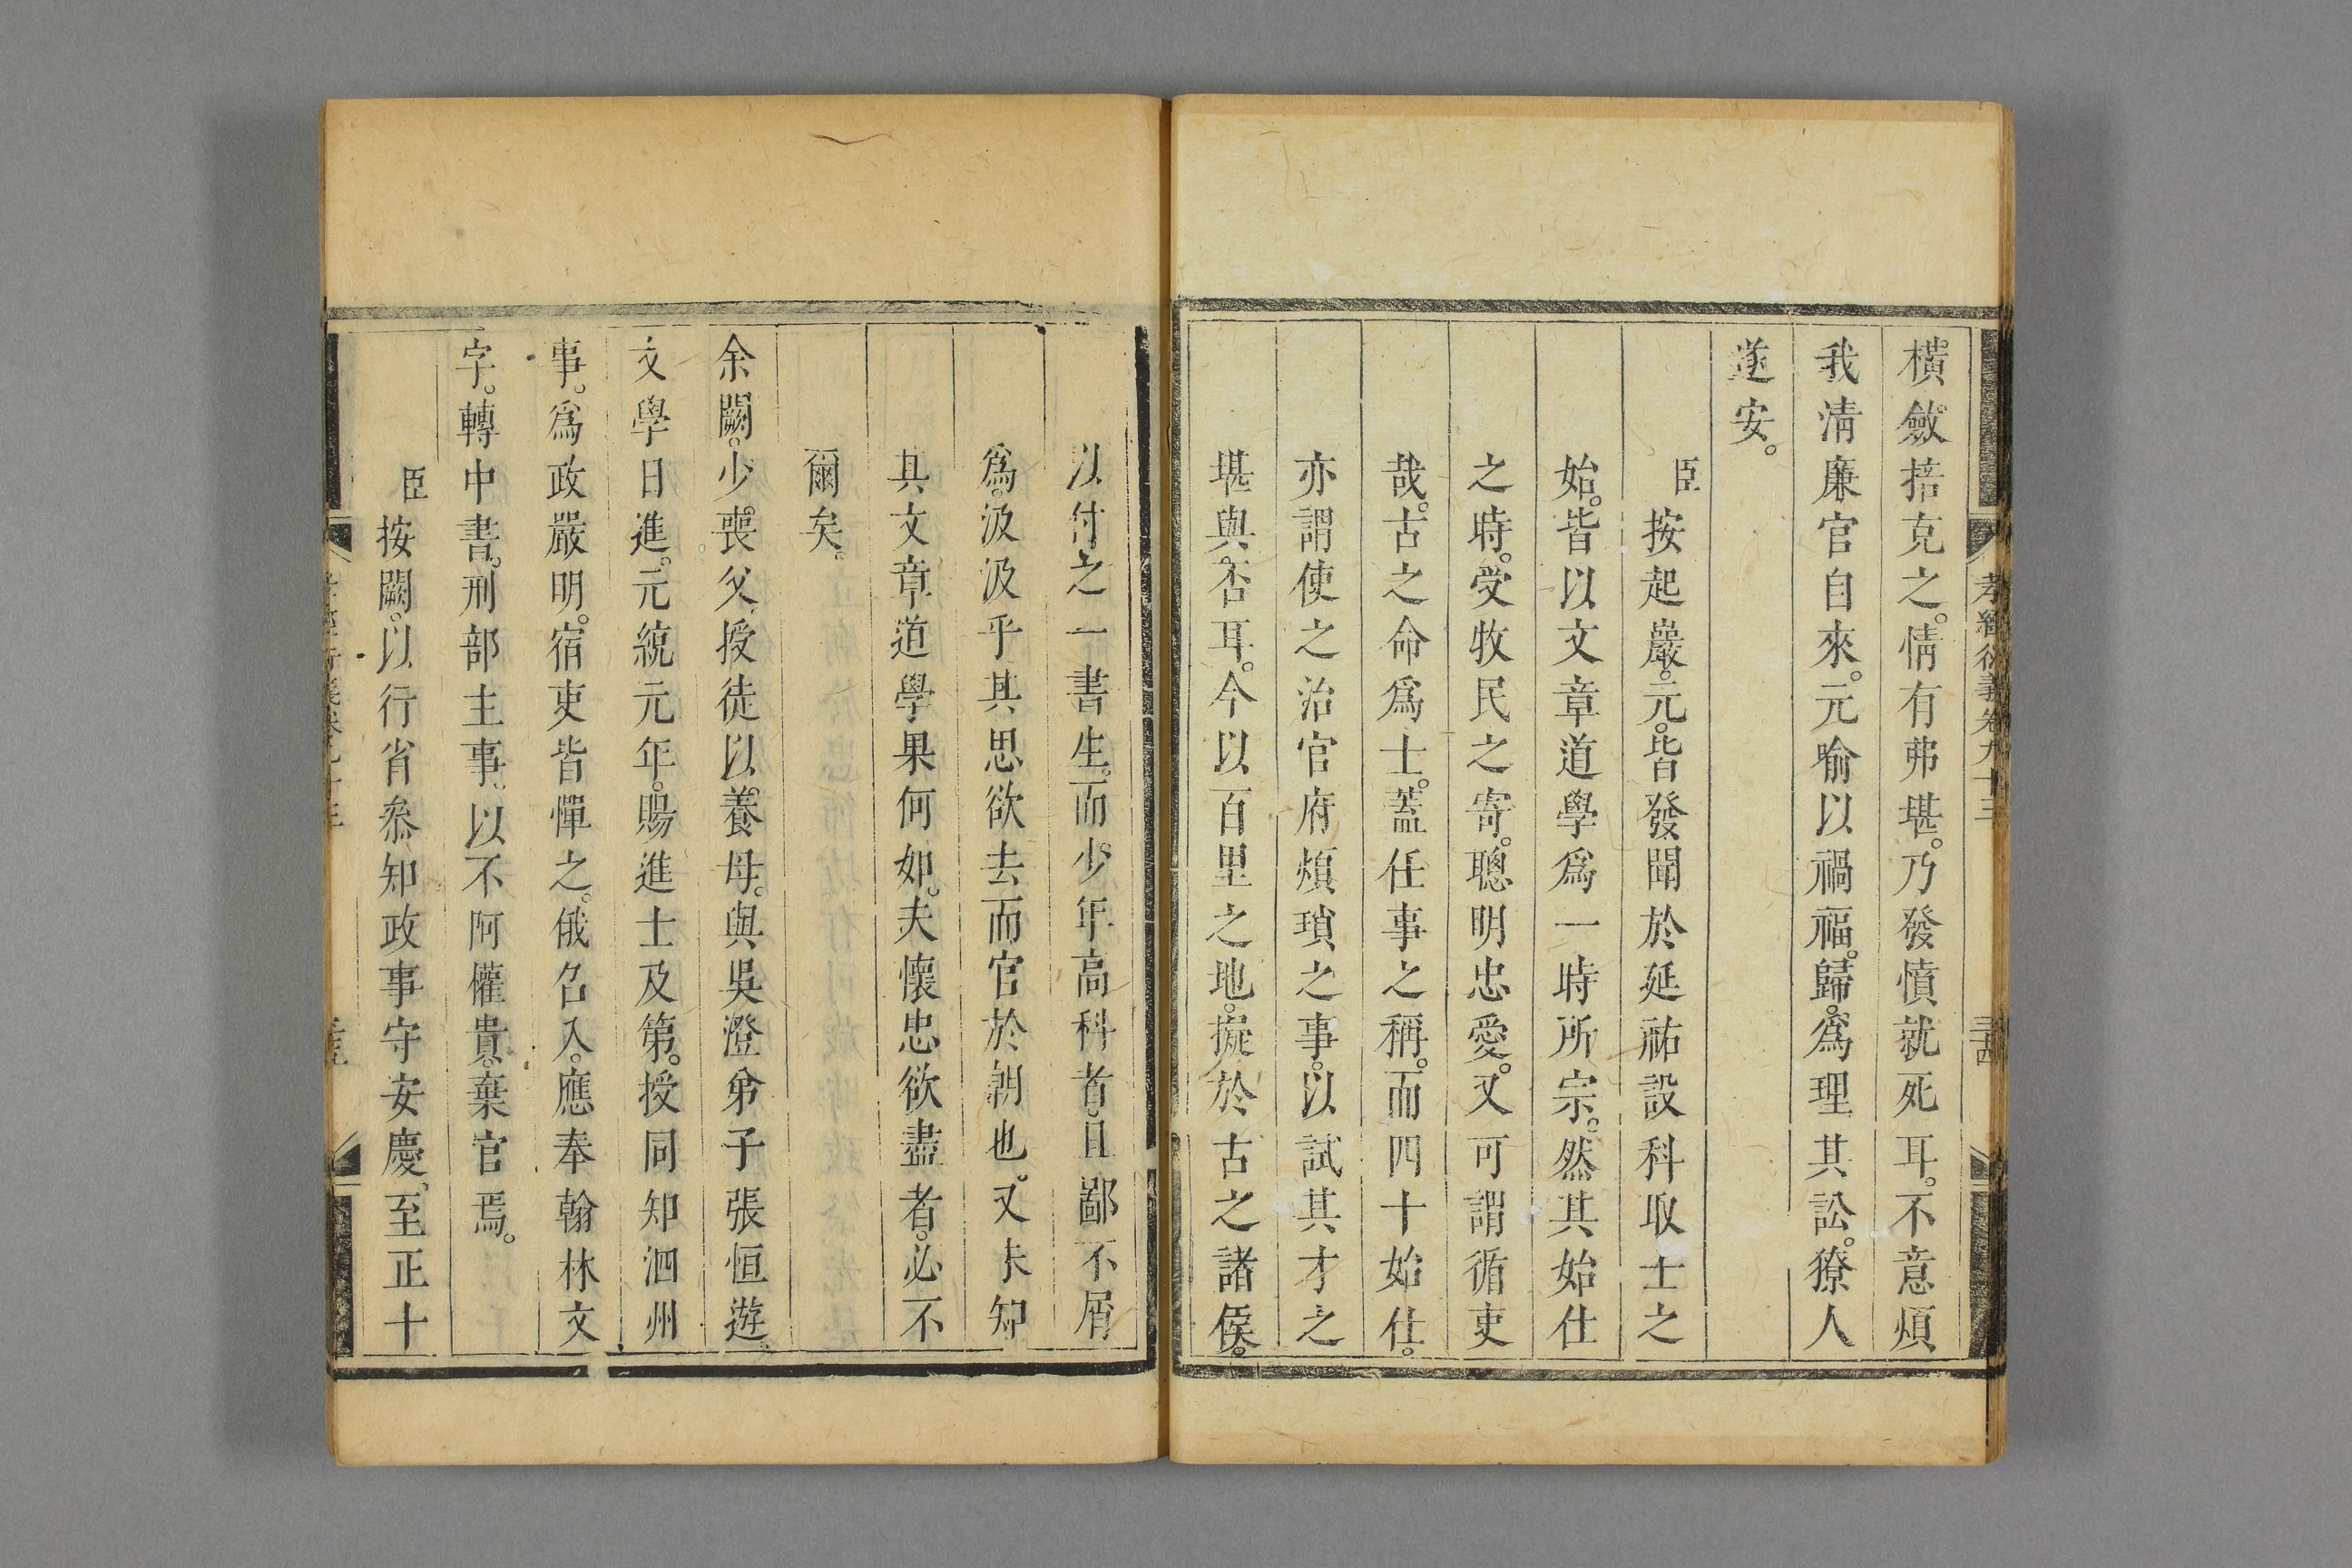 孝經衍義卷九十三
三十四
橫斂掊克之。情有弗堪。乃發憤就死耳。不意煩
我清廉官自來。元喻以禍福。歸。爲理其訟。獠人
遂安。
臣按起巖。元。皆發聞於延祐設科取士之
始。皆以文章道學爲一時所宗。然其始仕
之時。受牧民之寄。聰明忠愛。又可謂循吏
哉。古之命爲士。蓋任事之稱。而四十始仕。
亦謂使之治官府煩瑣之事。以試其才之
堪與。否耳。今以百里之地。擬於古之諸侯。
以付之一書生。而少年高科者。且鄙不屑
爲。汲汲乎其思欲去而官於朝也。又未知
其文章道學果何如。夫懷忠欲盡者。必不
爾矣。
余闕。少。喪父。授徒以養母。與吳澄弟子張恒遊。
文學日進。元統元年。賜進士及第。授同知泗州
事。爲政嚴明。宿吏皆憚之。俄召入。應奉翰林文
字。轉中書。刑部主事。以不阿權貴。棄官焉。
臣按闕。以行省叅知政事守安慶。至正十